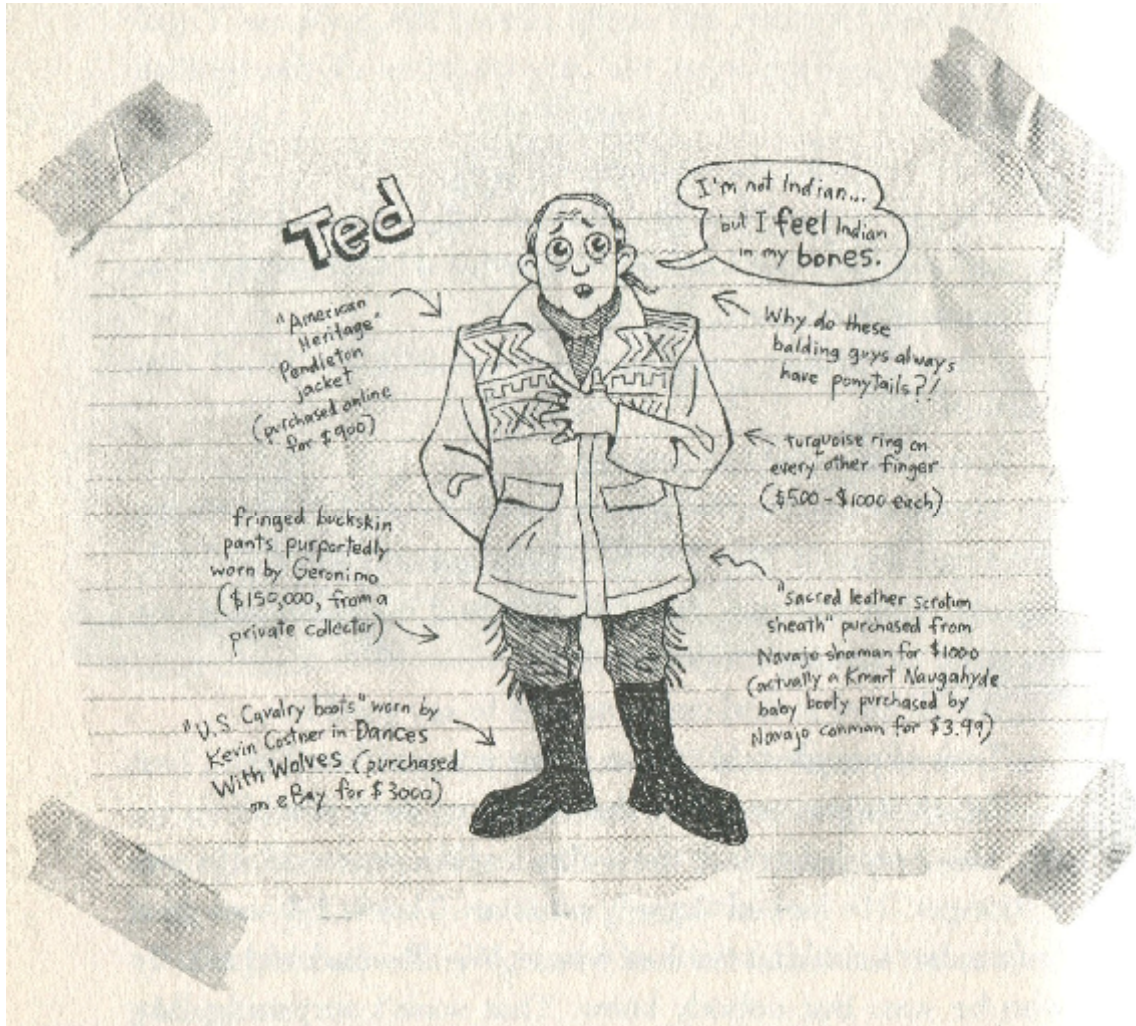 Ted
I'm not Indian...
but I feel Indian
in my bones.
"American
Heritage"
Pendleton
jacket
(purchased online
for $900)
Why do these
balding guys always
have ponytails?!
turquoise ring on
every other finger
($500-$1000 each)
fringed buckskin
pants purportedly
worn by Geronimo
($150,000, from a
private collector)
"sacred leather scrotum
sheath" purchased from
Navajo shaman for $1000
(actually a Kmart Naugahyde
baby booty purchased by
Navajo conman for $3.99)
"U.S Cavalry boots" worn by
Kevin Costner in Dances
With Wolves (purchased
on eBay for $3000)